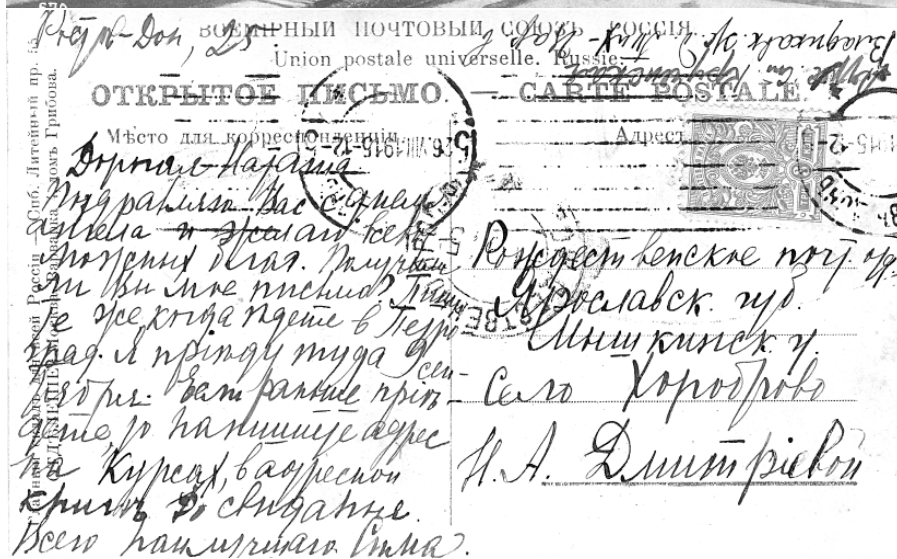 ВСЕМІРНЫЙ ПОЧТОВЫЙ СОЮЗЪ. РОССІЯ.
Union postale universelle. Russie.
ОТКРЫТОЕ ПИСЬМО. — CARTE POSTALE.
Мѣсто для корреспонденціи
Адресъ
Дорогая Наташа
Поздравляю Вас с днем
ангела и желаю все
благ. Получили
ли Вы мое письмо? Пиши
те же, когда идете в Петро
град. Я приеду туда 9 сен
тября. Если раньше прие
дете, то напишите адрес
на Курсах, в адресной
книге. До свиданья.
Всего наилучшаго Сима.
Рождественское почт. отд.
Ярославск. губ.
Мышкинск. у.
Село Хороброво
Н. А. Дмитріевой